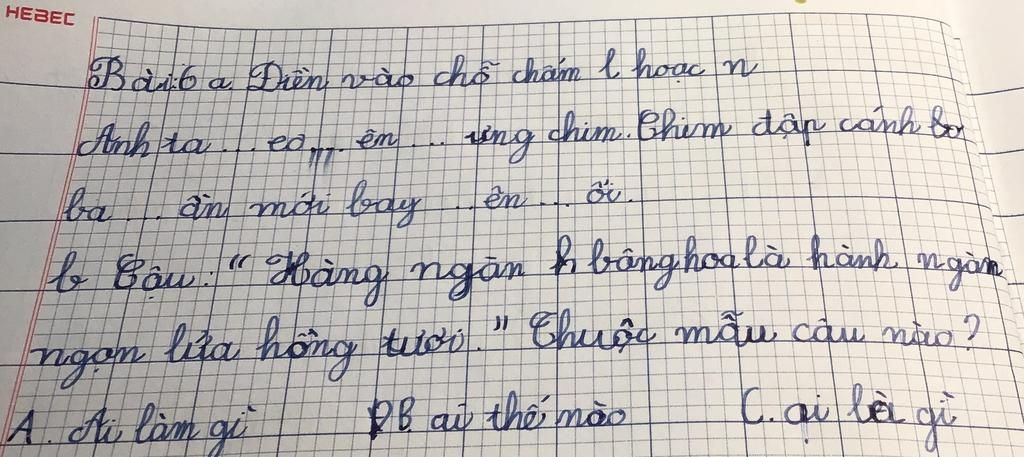 HEBEC
Bài 6 a Điền vào chỗ chấm l hoạc n
Anh ta ... eo ... ên ... ưng chim. Chim đập cánh ba
ba ... ần mới bay ... ên ... ổi.
b Câu: " Hàng ngàn bông hoa là hành ngàn
ngọn lửa hồng tươi. " Thuộc mẫu câu nào?
A. Ai làm gì B. ai thế nào C. ai là gì